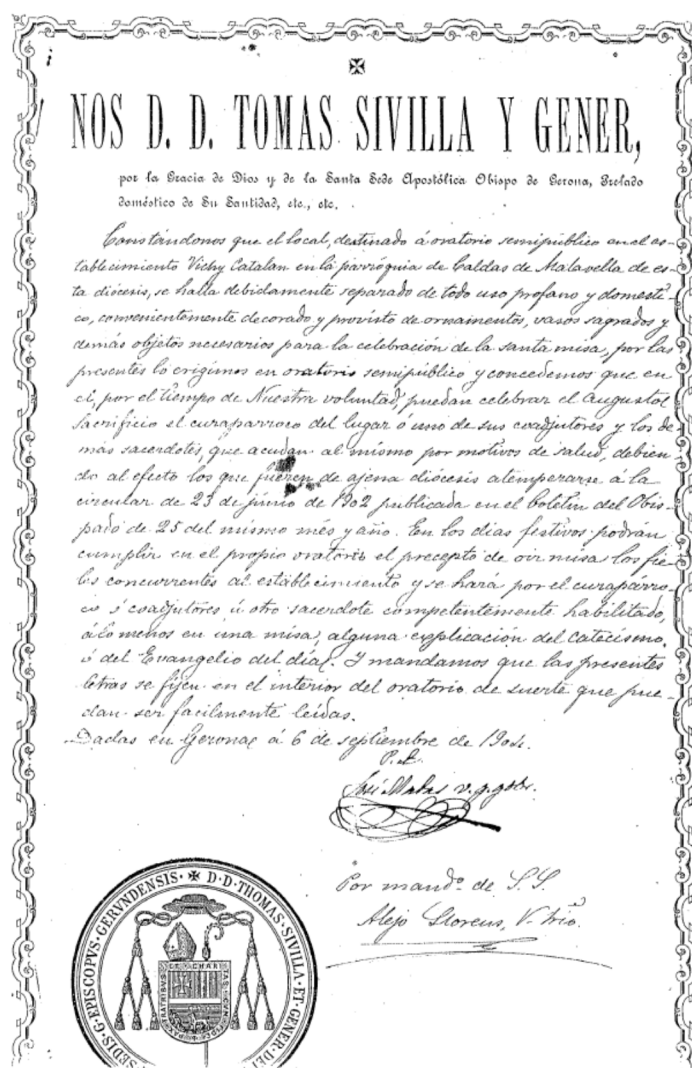 NOS D. D. TOMAS SIVILLA Y GENER,
por la Gracia de Dios y de la Santa Sede Apostólica Obispo de Gerona, Prelado
doméstico de Su Santidad, etc., etc.
Constándonos que el local, destinado á oratorio semipúblico en el es-
tablecimiento Vichy Catalan en la parróquia de Caldas de Malavella de es-
ta diócesis, se halla debidamente separado de todo uso profano y domésti-
co, convenientemente decorado y provisto de ornamentos, vasos sagrados y
demás objetos necesarios para la celebración de la santa misa, por las
presentes lo erigimos en oratorio semipúblico y concedemos que en
él, por el tiempo de Nuestra voluntad, puedan celebrar el augusto
sacrificio el curapárroco del lugar ó uno de sus coadjutores y los de
más sacerdotes, que acudan al mismo por motivos de salud, debien-
do al efecto los que fueren de ajena diócesis atemperarse á la
circular de 23 de junio de 1902 publicada en el boletin del Obis-
pado de 25 del mismo més y año. En los dias festivos podrán
cumplir en el propio oratorio el precepto de oir misa los fie-
les concurrentes al establecimiento y se hará por el curapárro-
co ó coadjutores ú otro sacerdote competentemente habilitado,
á lo menos en una misa, alguna explicación del catecismo,
ó del Evangelio del dia. Y mandamos que las presentes
letras se fijen en el interior del oratorio de suerte que pue-
dan ser facilmente leidas.
Dadas en Gerona á 6 de septiembre de 1904.
José Matas v. g. gobr.
Por mandº de S. S.
Alejo Llorens, V. Srio.
SEDIS G. EPISCOPVS. GERVNDENSIS. D. D. THOMAS. SIVILLA ET. GENER. DEI